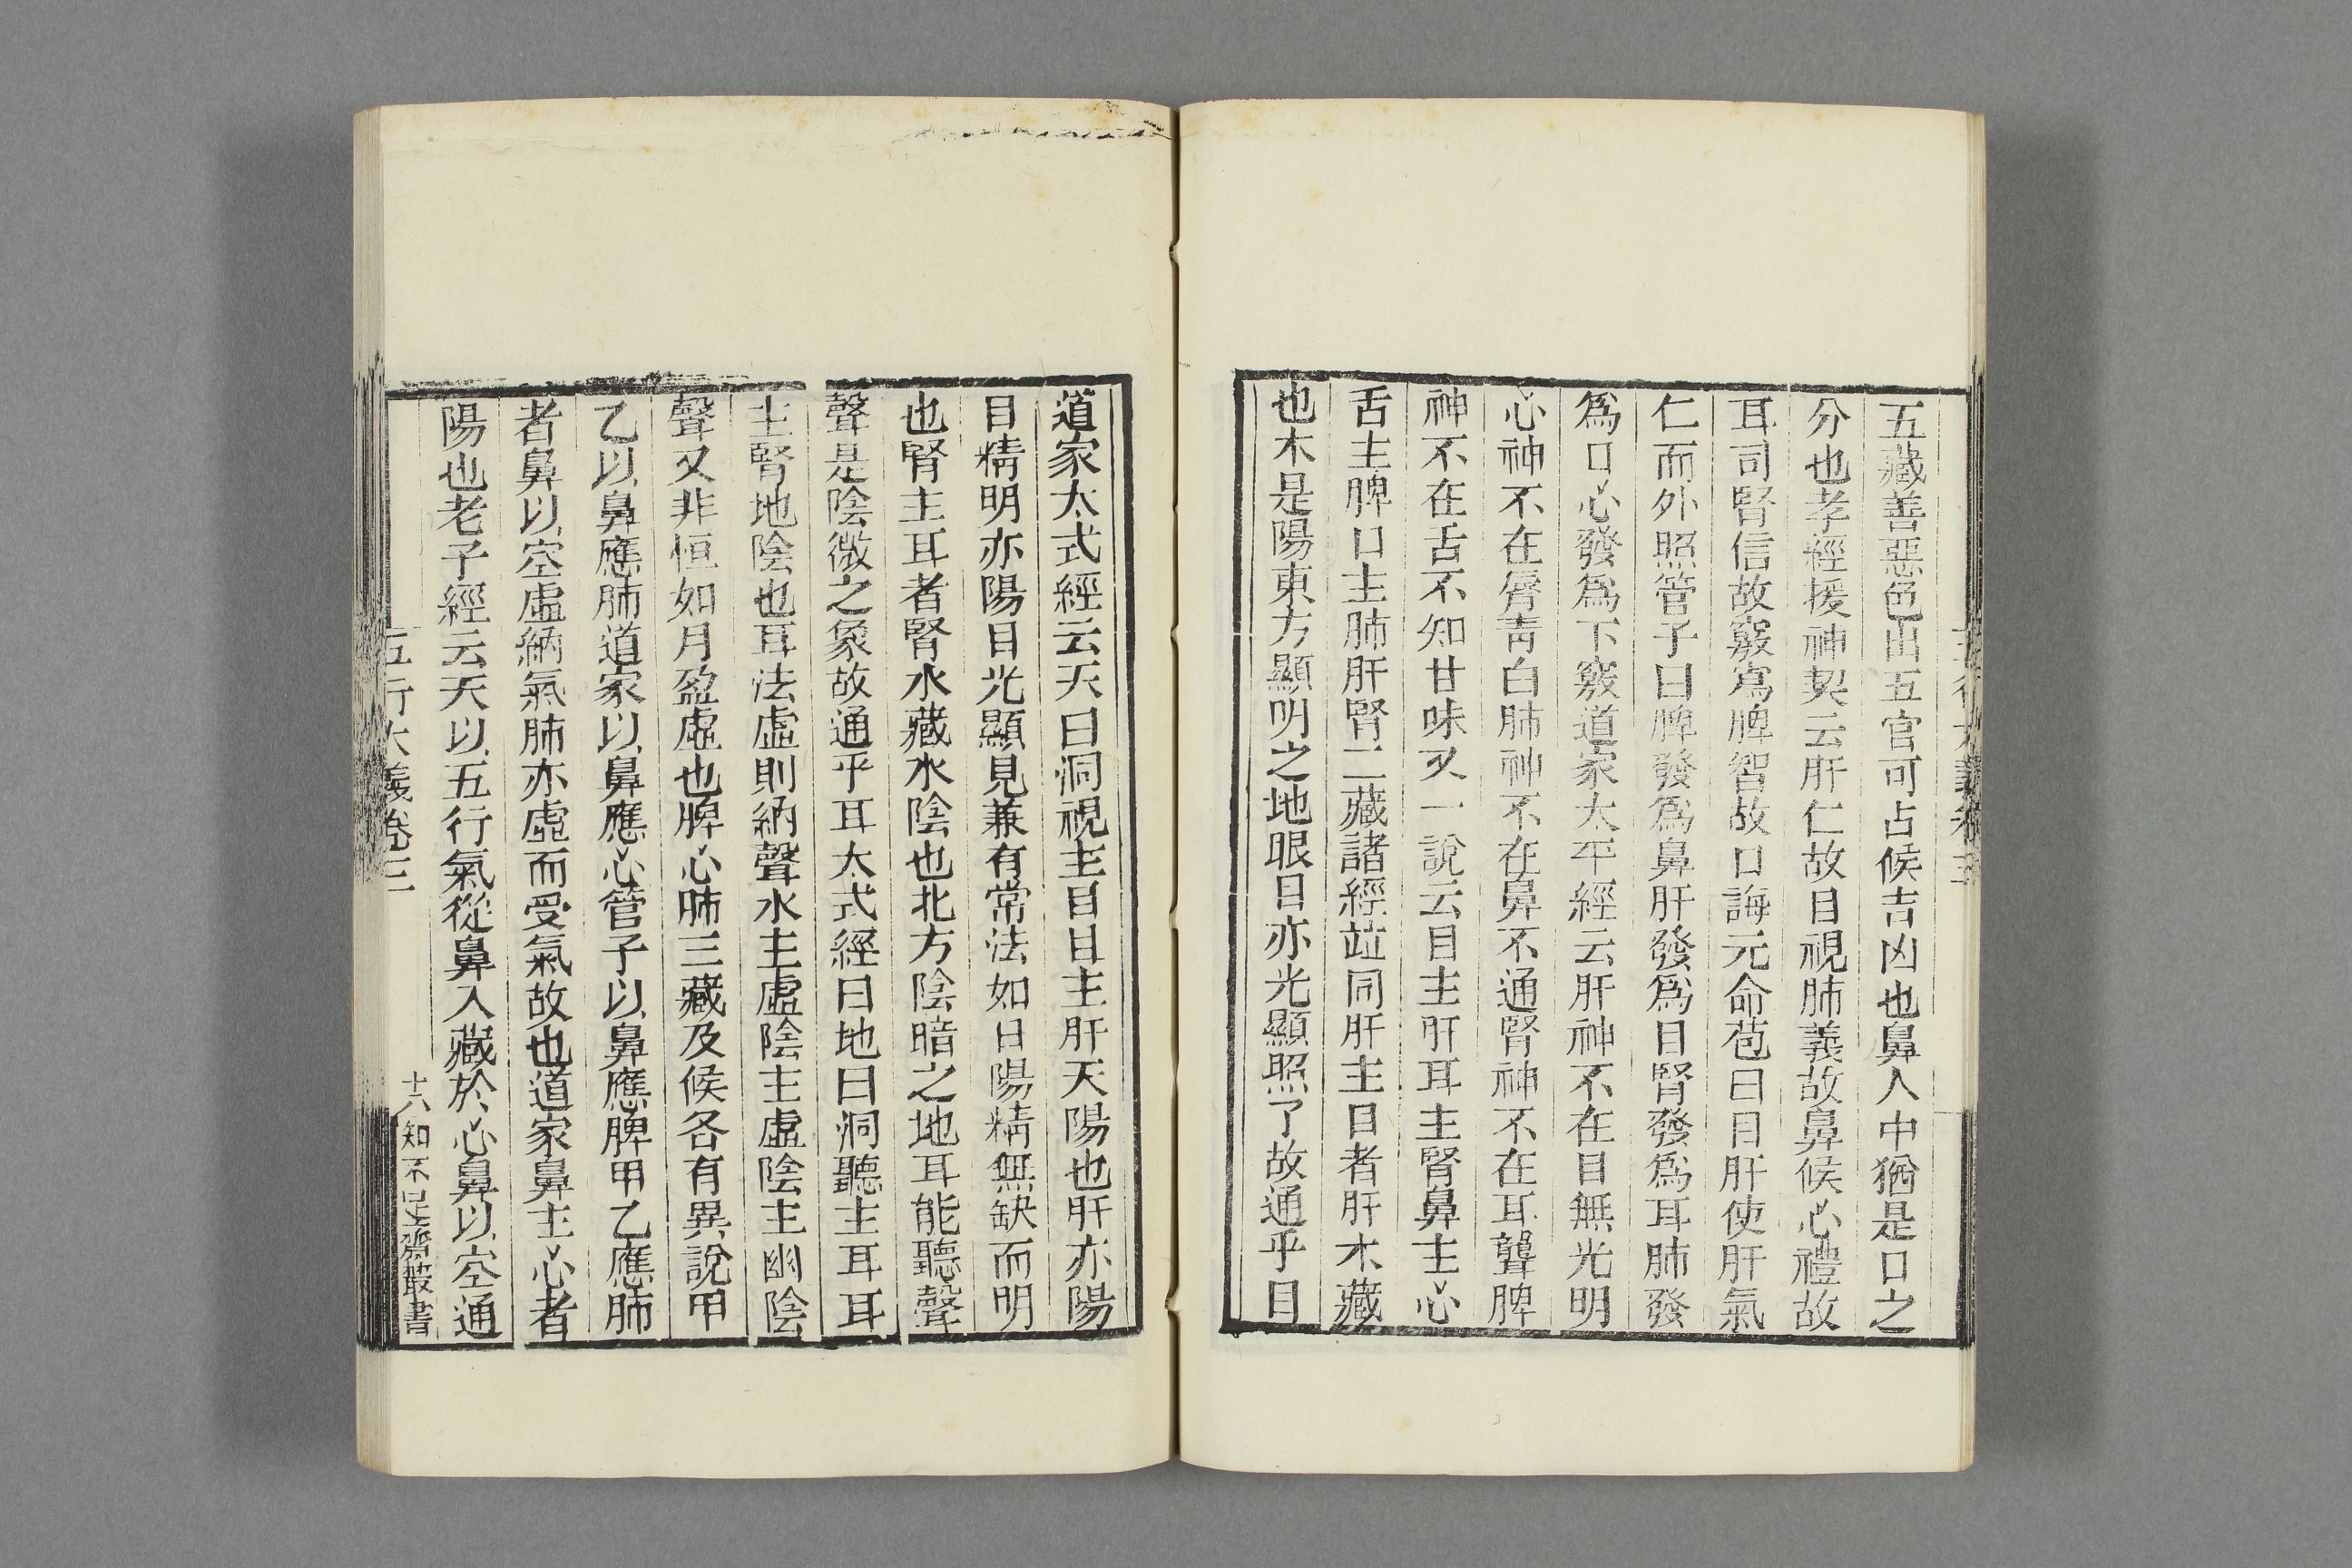 五藏善惡色出五官可占候吉凶也鼻人中猶是口之
分也孝經援神契云肝仁故目視肺義故鼻候心禮故
耳司腎信故竅寫脾智故口誨元命苞曰目肝使肝氣
仁而外照管子曰脾發爲鼻肝發爲目腎發爲耳肺發
爲口心發爲下竅道家太平經云肝神不在目無光明
心神不在脣青白肺神不在鼻不通腎神不在耳聾脾
神不在舌不知甘味又一說云目主肝耳主腎鼻主心
舌主脾口主肺肝腎二藏諸經竝同肝主目者肝木藏
也木是陽東方顯明之地眼目亦光顯照了故通乎目
道家太式經云天曰洞視主目目主肝天陽也肝亦陽
目精明亦陽目光顯見兼有常法如日陽精無缺而明
也腎主耳者腎水藏水陰也北方陰暗之地耳能聽聲
聲是陰微之象故通乎耳太式經曰地曰洞聽主耳耳
主腎地陰也耳法虛則納聲水主虛陰主虛陰主幽陰
聲又非恒如月盈虛也脾心肺三藏及候各有異說甲
乙以鼻應肺道家以鼻應心管子以鼻應脾甲乙應肺
者鼻以空虛納氣肺亦虛而受氣故也道家鼻主心者
陽也老子經云天以五行氣從鼻入藏於心鼻以空通
五行大義卷三
十六 知不足齋叢書